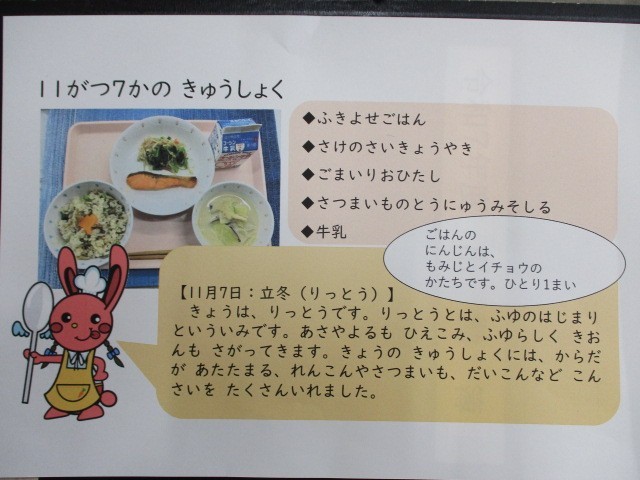 11がつ7かの きゅうしょく
◆ふきよせごはん
◆さけのさいきょうやき
◆ごまいりおひたし
◆さつまいものとうにゅうみそしる
◆牛乳
ごはんの
にんじんは、
もみじとイチョウの
かたちです。ひとり1まい
【11月7日：立冬（りっとう）】
きょうは、りっとうです。りっとうとは、ふゆのはじまり
といういみです。あさやよるも ひえこみ、ふゆらしく きお
んも さがってきます。きょうの きゅうしょくには、からだ
が あたたまる、れんこんやさつまいも、だいこんなど こん
さいを たくさんいれました。